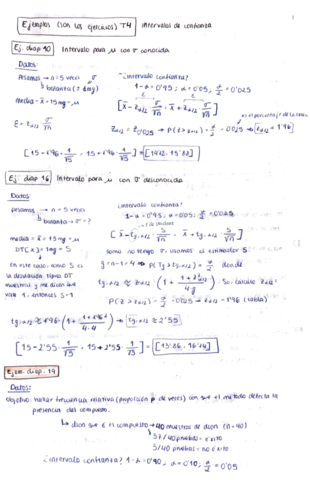 Ejemplos (son los ejercicios) T4 Intervalos de confianza
Ej. diap 10 Intervalo para μ con σ conocida
Datos:
Pesamos → n = 5 veces σ
balanza (± 1mg)
media = x̄ = 15mg = μ
¿intervalo confianza?
1-α = 0'95; α = 0'05; α/2 = 0'025
[x̄ - Zα/2 σ/√n, x̄ + Zα/2 σ/√n]
E = Zα/2 σ/√n
Zα/2 = Z0'025 → P(Z > Zα/2) = α/2 = 0'025 → Zα/2 = 1'96
[15 - 1'96 · 1/√5, 15 + 1'96 · 1/√5] = [14'12, 15'88]
Ej. diap 16 Intervalo para μ con σ desconocida
Datos:
pesamos → n = 5 veces
balanza → σ = ?
media = x̄ = 15mg = μ
DTC x̄ = 1mg = S
en este caso, como S es
la desviación típica DT
muestral y me dicen que
vale 1, entonces S=1
¿intervalo confianza?
1-α = 0'95; α = 0'05; α/2 = 0'025
[x̄ - tg, α/2 S/√n, x̄ + tg, α/2 S/√n]
como no tengo σ, usamos el estimador S
g = n-1 = 4 → P(tg > tg, α/2) = α/2 donde
P(Z > Zα/2) = α/2 = 0'025 → Zα/2 = 1'96 (tabla)
[15 - 2'55 · 1/√5, 15 + 2'55 · 1/√5] = [13'86, 16'14]
Ejem. diap. 19
Datos:
objetivo: hallar frecuencia relativa (proporción p de veces) con que el método detecta la
presencia del compuesto.
→ 40 muestras de (n = 40)
37/40 pruebas =
3/40 pruebas =
¿intervalo confianza? 1-α = 0'90; α = 0'10; α/2 = 0'05